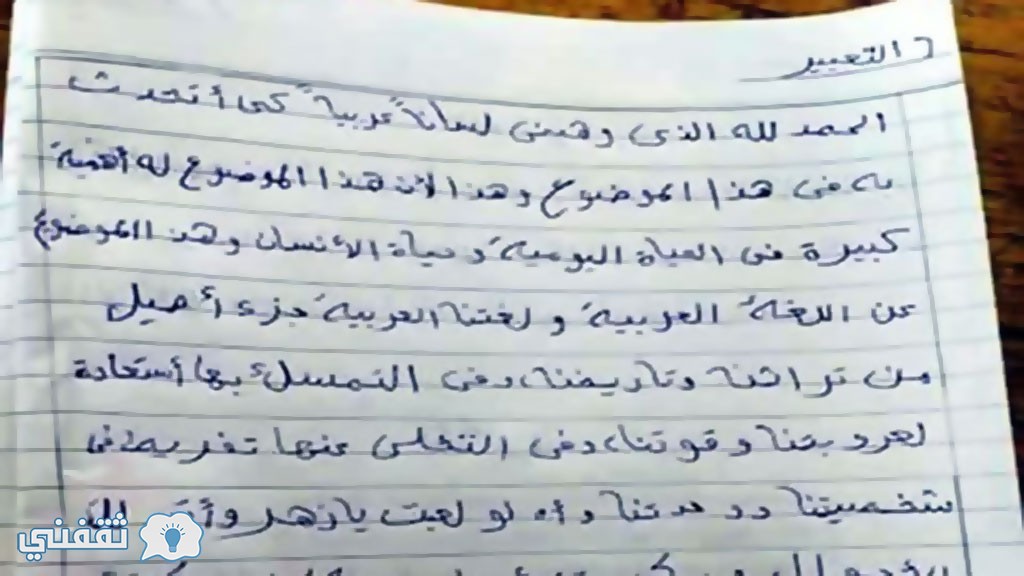 التعبير
الحمد لله الذى وهبنى لساناً عربياً كى أتحدث
به فى هذا الموضوع وهذا لأن هذا الموضوع له أهمية
كبيرة فى الحياة اليومية وحياة الأنسان وهذا الموضوع
عن اللغة العربية ولغتنا العربية جزء أصيل
من تراثنا وتاريخنا، وفى التمسك بها أستعادة
لعروبتنا وقوتنا، وفى التخلى عنها تفريط فى
شخصيتنا ووحدتنا وأه لو لعبت يا زهر
ثقفني